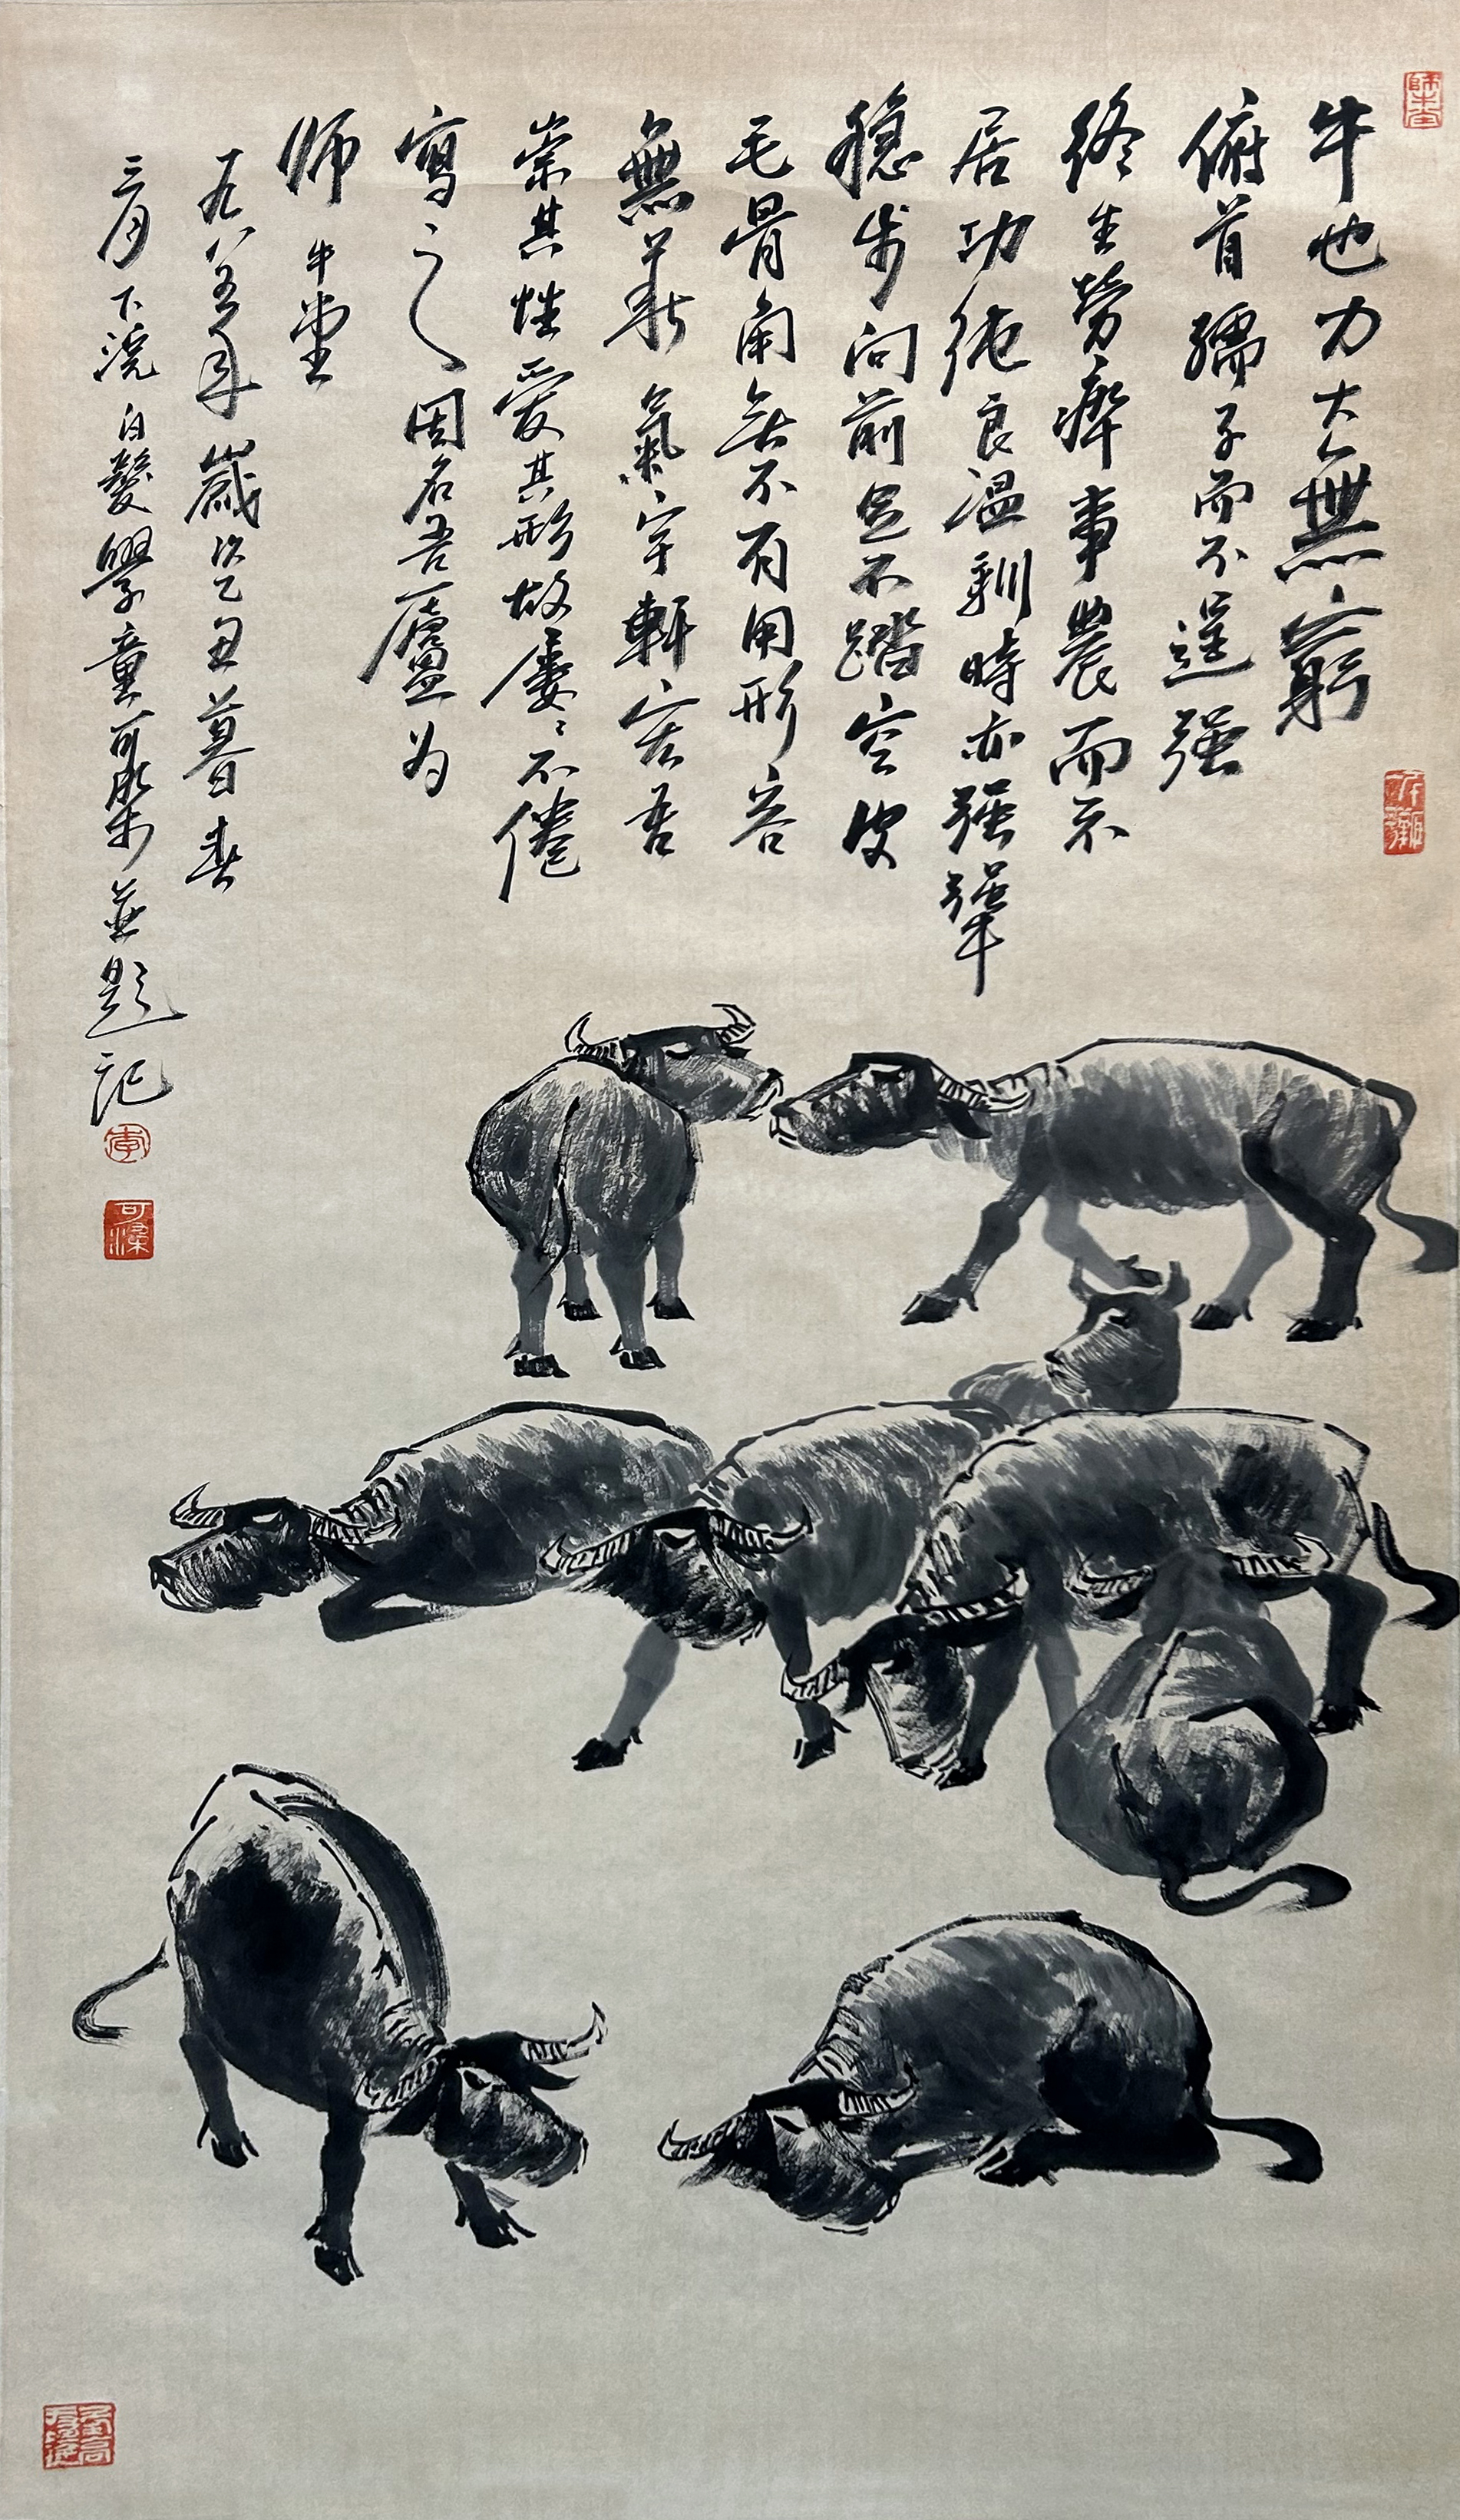 牛也力大無窮
俯首孺子而不逞强
終生勞瘁事農而不
居功純良温馴時亦强犟
穩步向前足不踏空皮
毛骨角無不有用形容
無華氣宇軒宏吾
崇其性愛其形故屢屢不倦
寫之因名吾廬为
师牛堂
一九八五年歲次乙丑暮春
三月下浣白髮學童可染並題記
師牛堂
李
可染